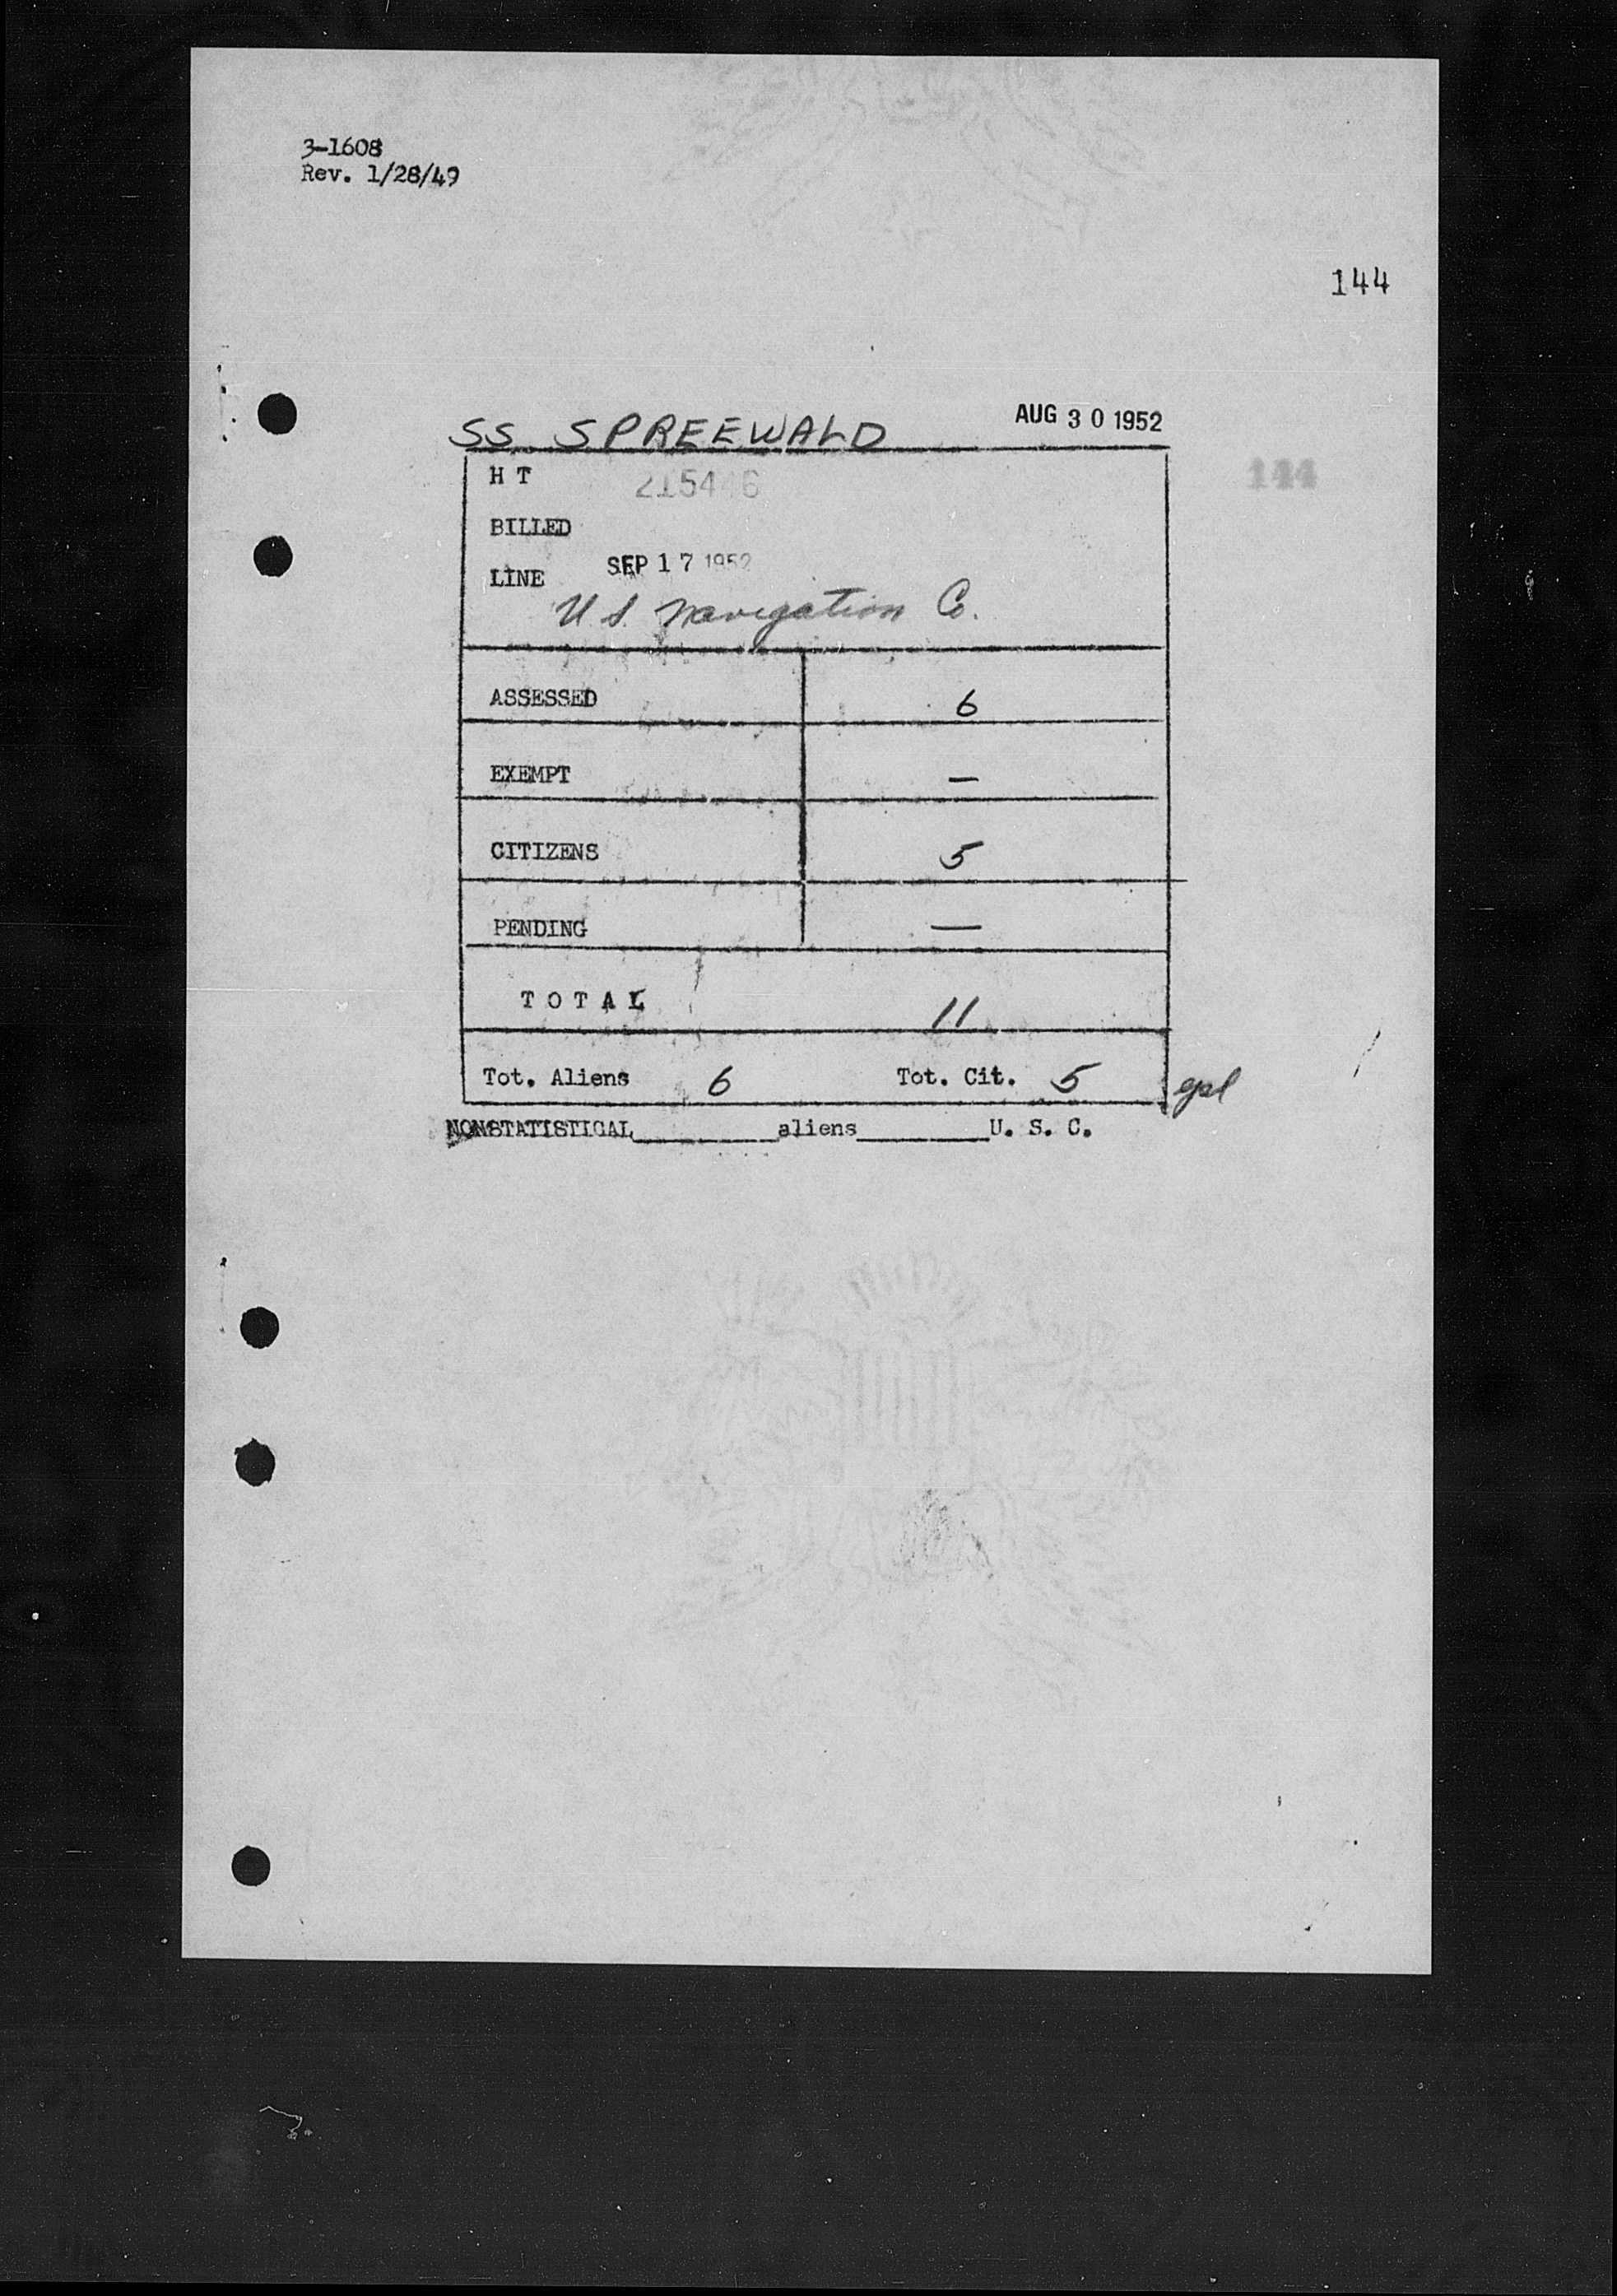 3-1608
Rev. 1/28/49
144
SS SPREEWALD AUG 30 1952
H T
144
BILLED
SEP 17 1952
LINE
U.S. Navigation Co.
ASSESSED 6
EXEMPT —
CITIZENS 5
PENDING —
TOTAL 11
Tot. Aliens 6 Tot. Cit. 5
NONSTATISTICAL__________aliens_________U. S. C.